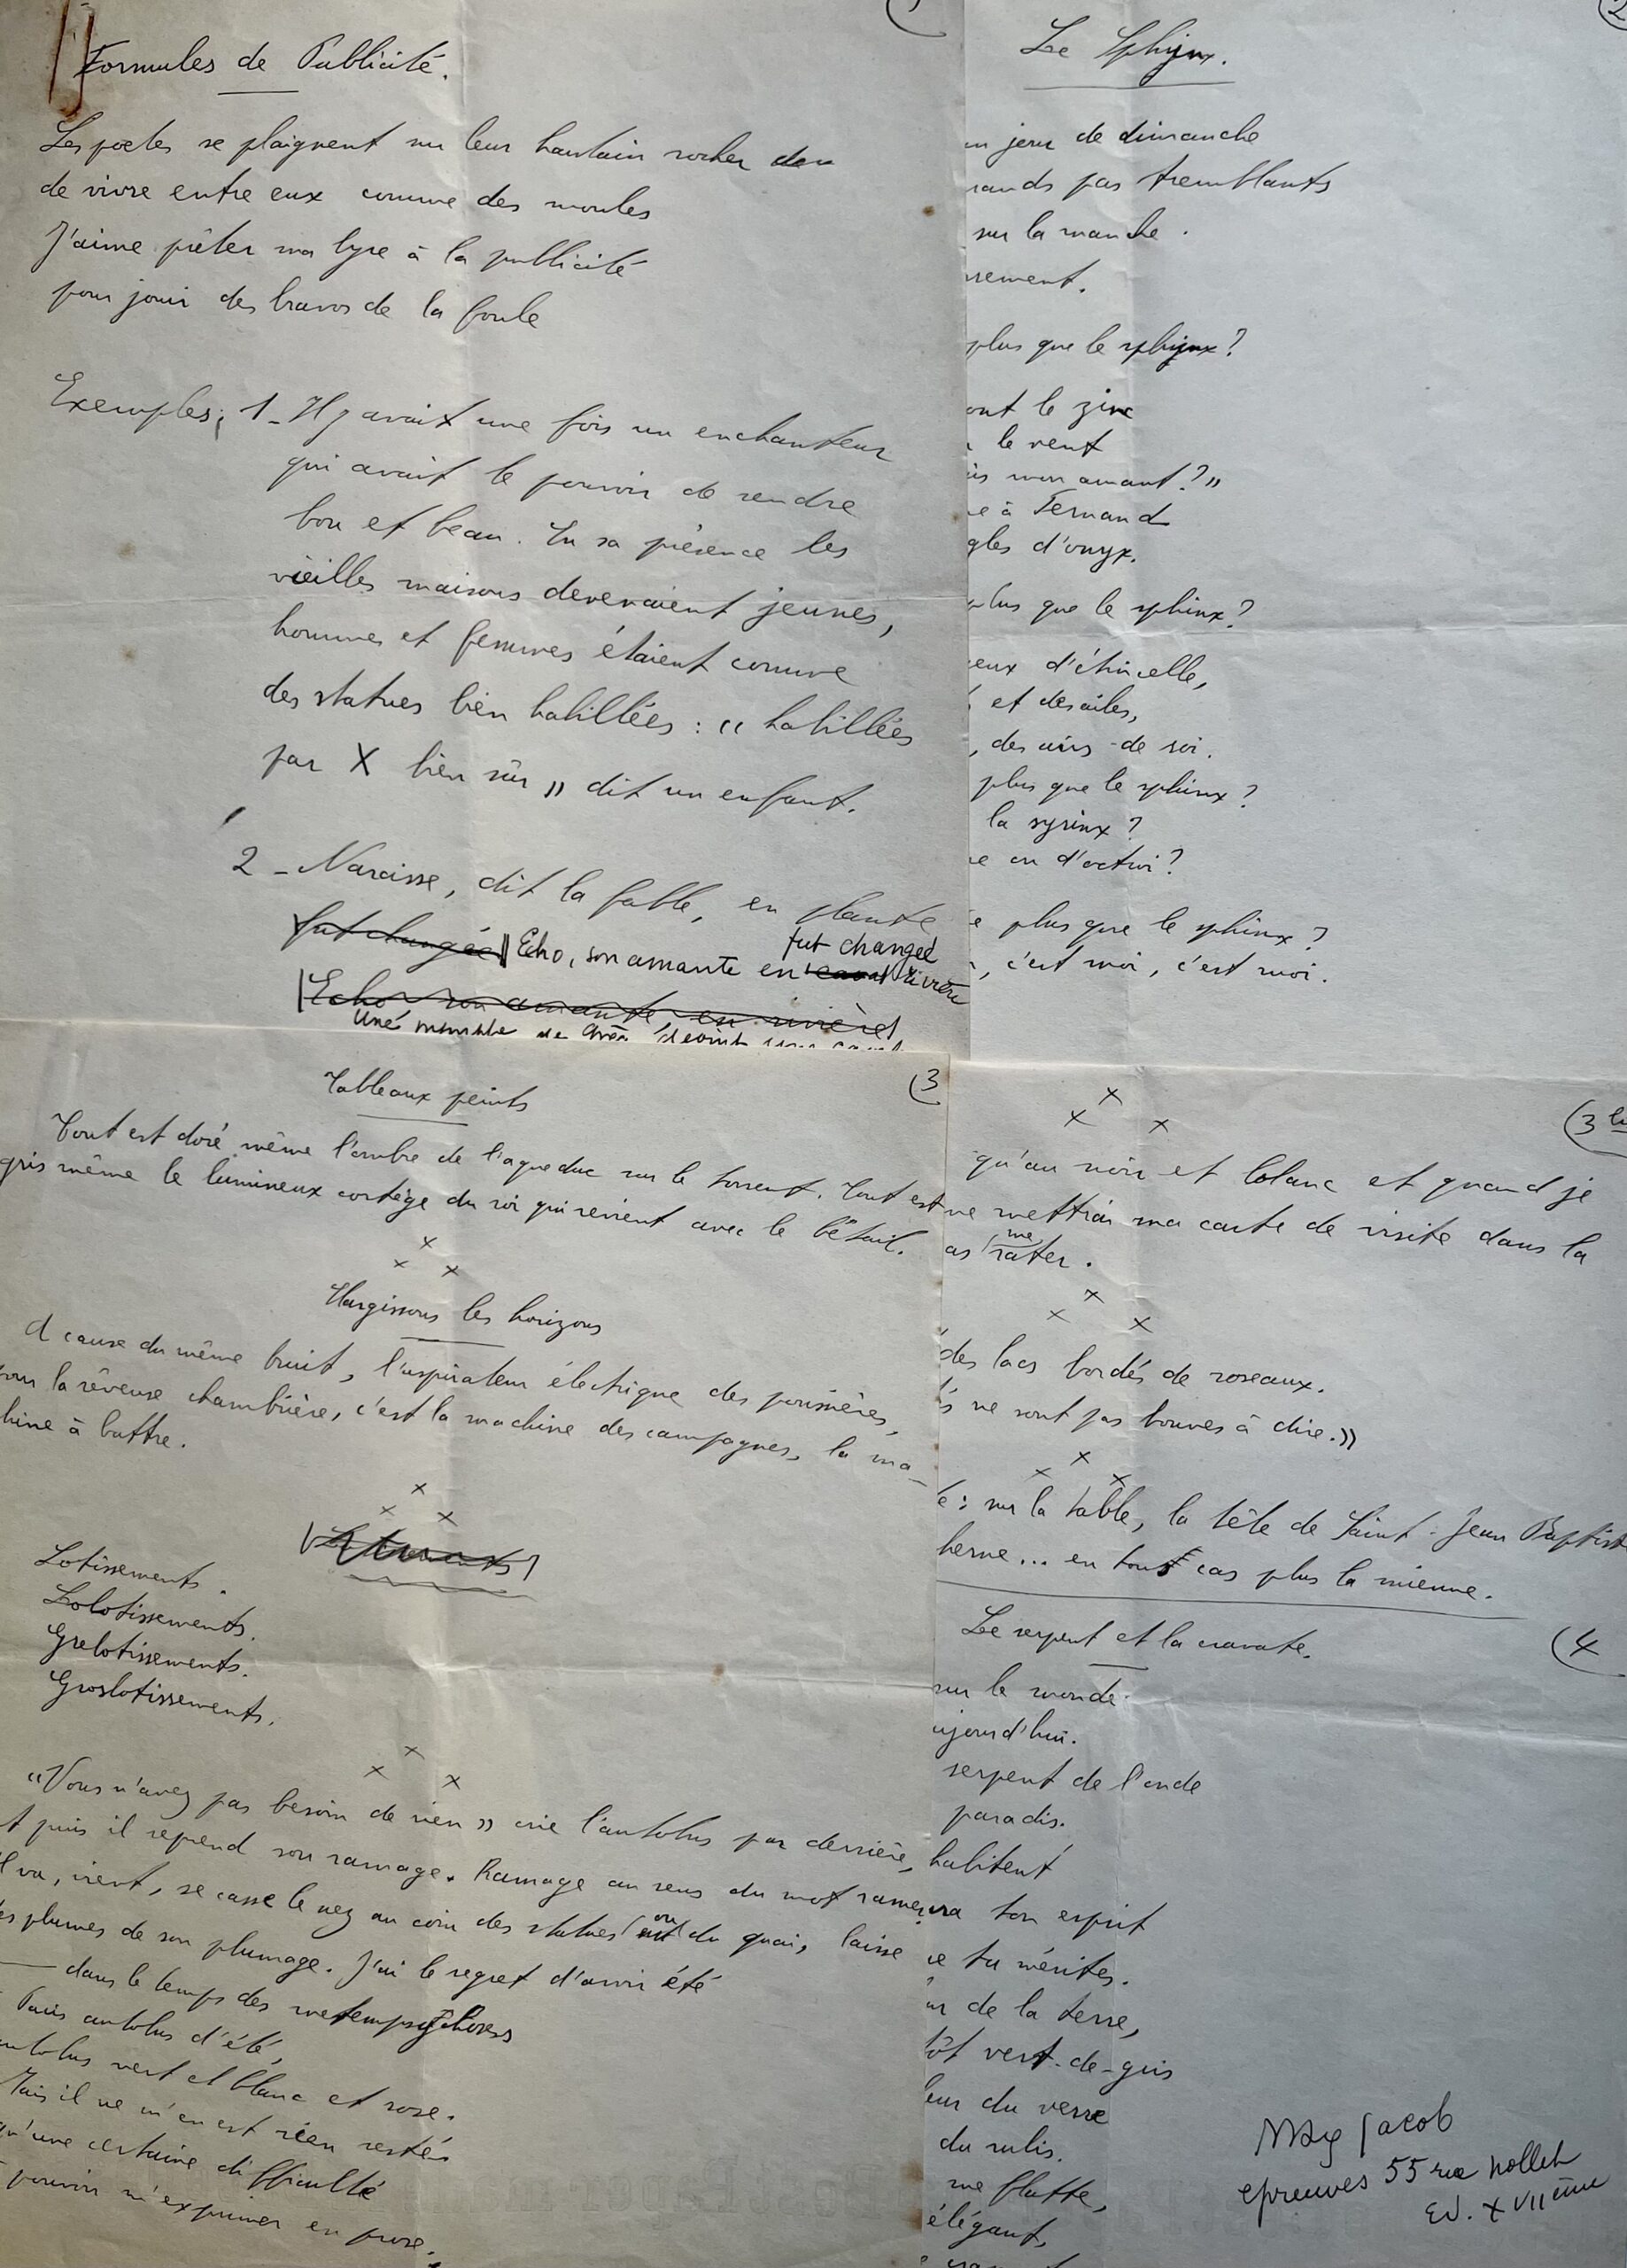 Formules de Publicité.
Les poètes se plaignent sur leur hautain rocher
de vivre entre eux comme des moules
J'aime prêter ma lyre à la publicité
pour jouir des bravos de la foule
Exemples: 1 - Il y avait une fois un enchanteur
qui avait le pouvoir de rendre
bon et beau. En sa présence les
vieilles maisons devenaient jeunes,
hommes et femmes étaient comme
des statues bien habillées : « habillées
par X bien sûr » dit un enfant.
2 - Narcisse, dit la fable, en plante
fut changée Echo, son amante en rivière
fut changed
Echo son amante, en rivière
Une de devint une
(2
Le Sphijnx.
jour de dimanche
pas tremblants
sur la manche.
plus que le sphijnx?
ont le zinc
le vent
mon amant? »
à Fernand
d'onyx.
plus que le sphinx?
d'étincelle,
et des ailes,
, des airs de soi.
plus que le sphinx?
la syrinx?
ou d'octroi?
plus que le sphinx?
, c'est moi, c'est moi.
(3
Tableaux peints
Tout est doré même l'ombre de l'aqueduc sur le torrent. Tout est
gris même le lumineux cortège du roi qui revient avec le bétail.
x
x x
Elargissons les horizons
A cause du même bruit, l'aspirateur électrique des parisières,
pour la rêveuse chambrière, c'est la machine des campagnes, la ma-
hine à battre.
x
x x
Lotissements.
Lolotissements.
Grelotissements.
Groslotissements.
x
x x
« Vous n'avez pas besoin de rien » crie l'autobus par derrière,
t puis il reprend son ramage. Ramage au sens du mot rames,
Il va, vient, se casse le nez au coin des statues ou du quai, laisse
es plumes de son plumage. J'ai le regret d'avoir été
— dans le temps des metempsychoses
Paris autobus d'été,
autobus vert et blanc et rose.
Mais il ne m'en est rien resté
qu'une certaine difficulté
pouvoir m'exprimer en prose.
x
x x
qu'au noir et blanc et quand je
ne mettrai ma carte de visite dans la
as me rater.
x
x x
des lacs bordés de roseaux.
ne sont pas bonnes à dire. »
x
x x
: sur la table, la tête de Saint-Jean Baptist
berne... en tous cas plus la mienne.
(4
Le serpent et la cravate.
sur le monde
ujourd'hui.
serpent de l'onde
paradis.
habitent
ton esprit
tu mérites.
de la terre,
tôt vert-de-gris
du verre
du rubis.
me flatte,
élégant,
Max Jacob
epreuves 55 rue Nollet
EV. XVIIème